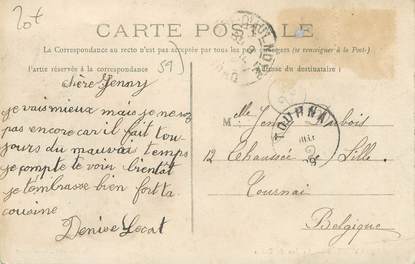 20f
CARTE POSTALE
La Correspondance au recto n'est pas acceptée par tous les pays étrangers (se renseigner à la Poste)
Partie réservée à la correspondance
Adresse du destinataire
59)
chère Jenny
je vais mieux mais je ne sors
pas encore car il fait tou-
jours du mauvais temps
je compte te voir bientôt
je t'embrasse bien fort ta
cousine
Denise Lecat
Melle Jenny Dubois
12 Chaussée Lille
Tournai
Belgique
TOURNAI